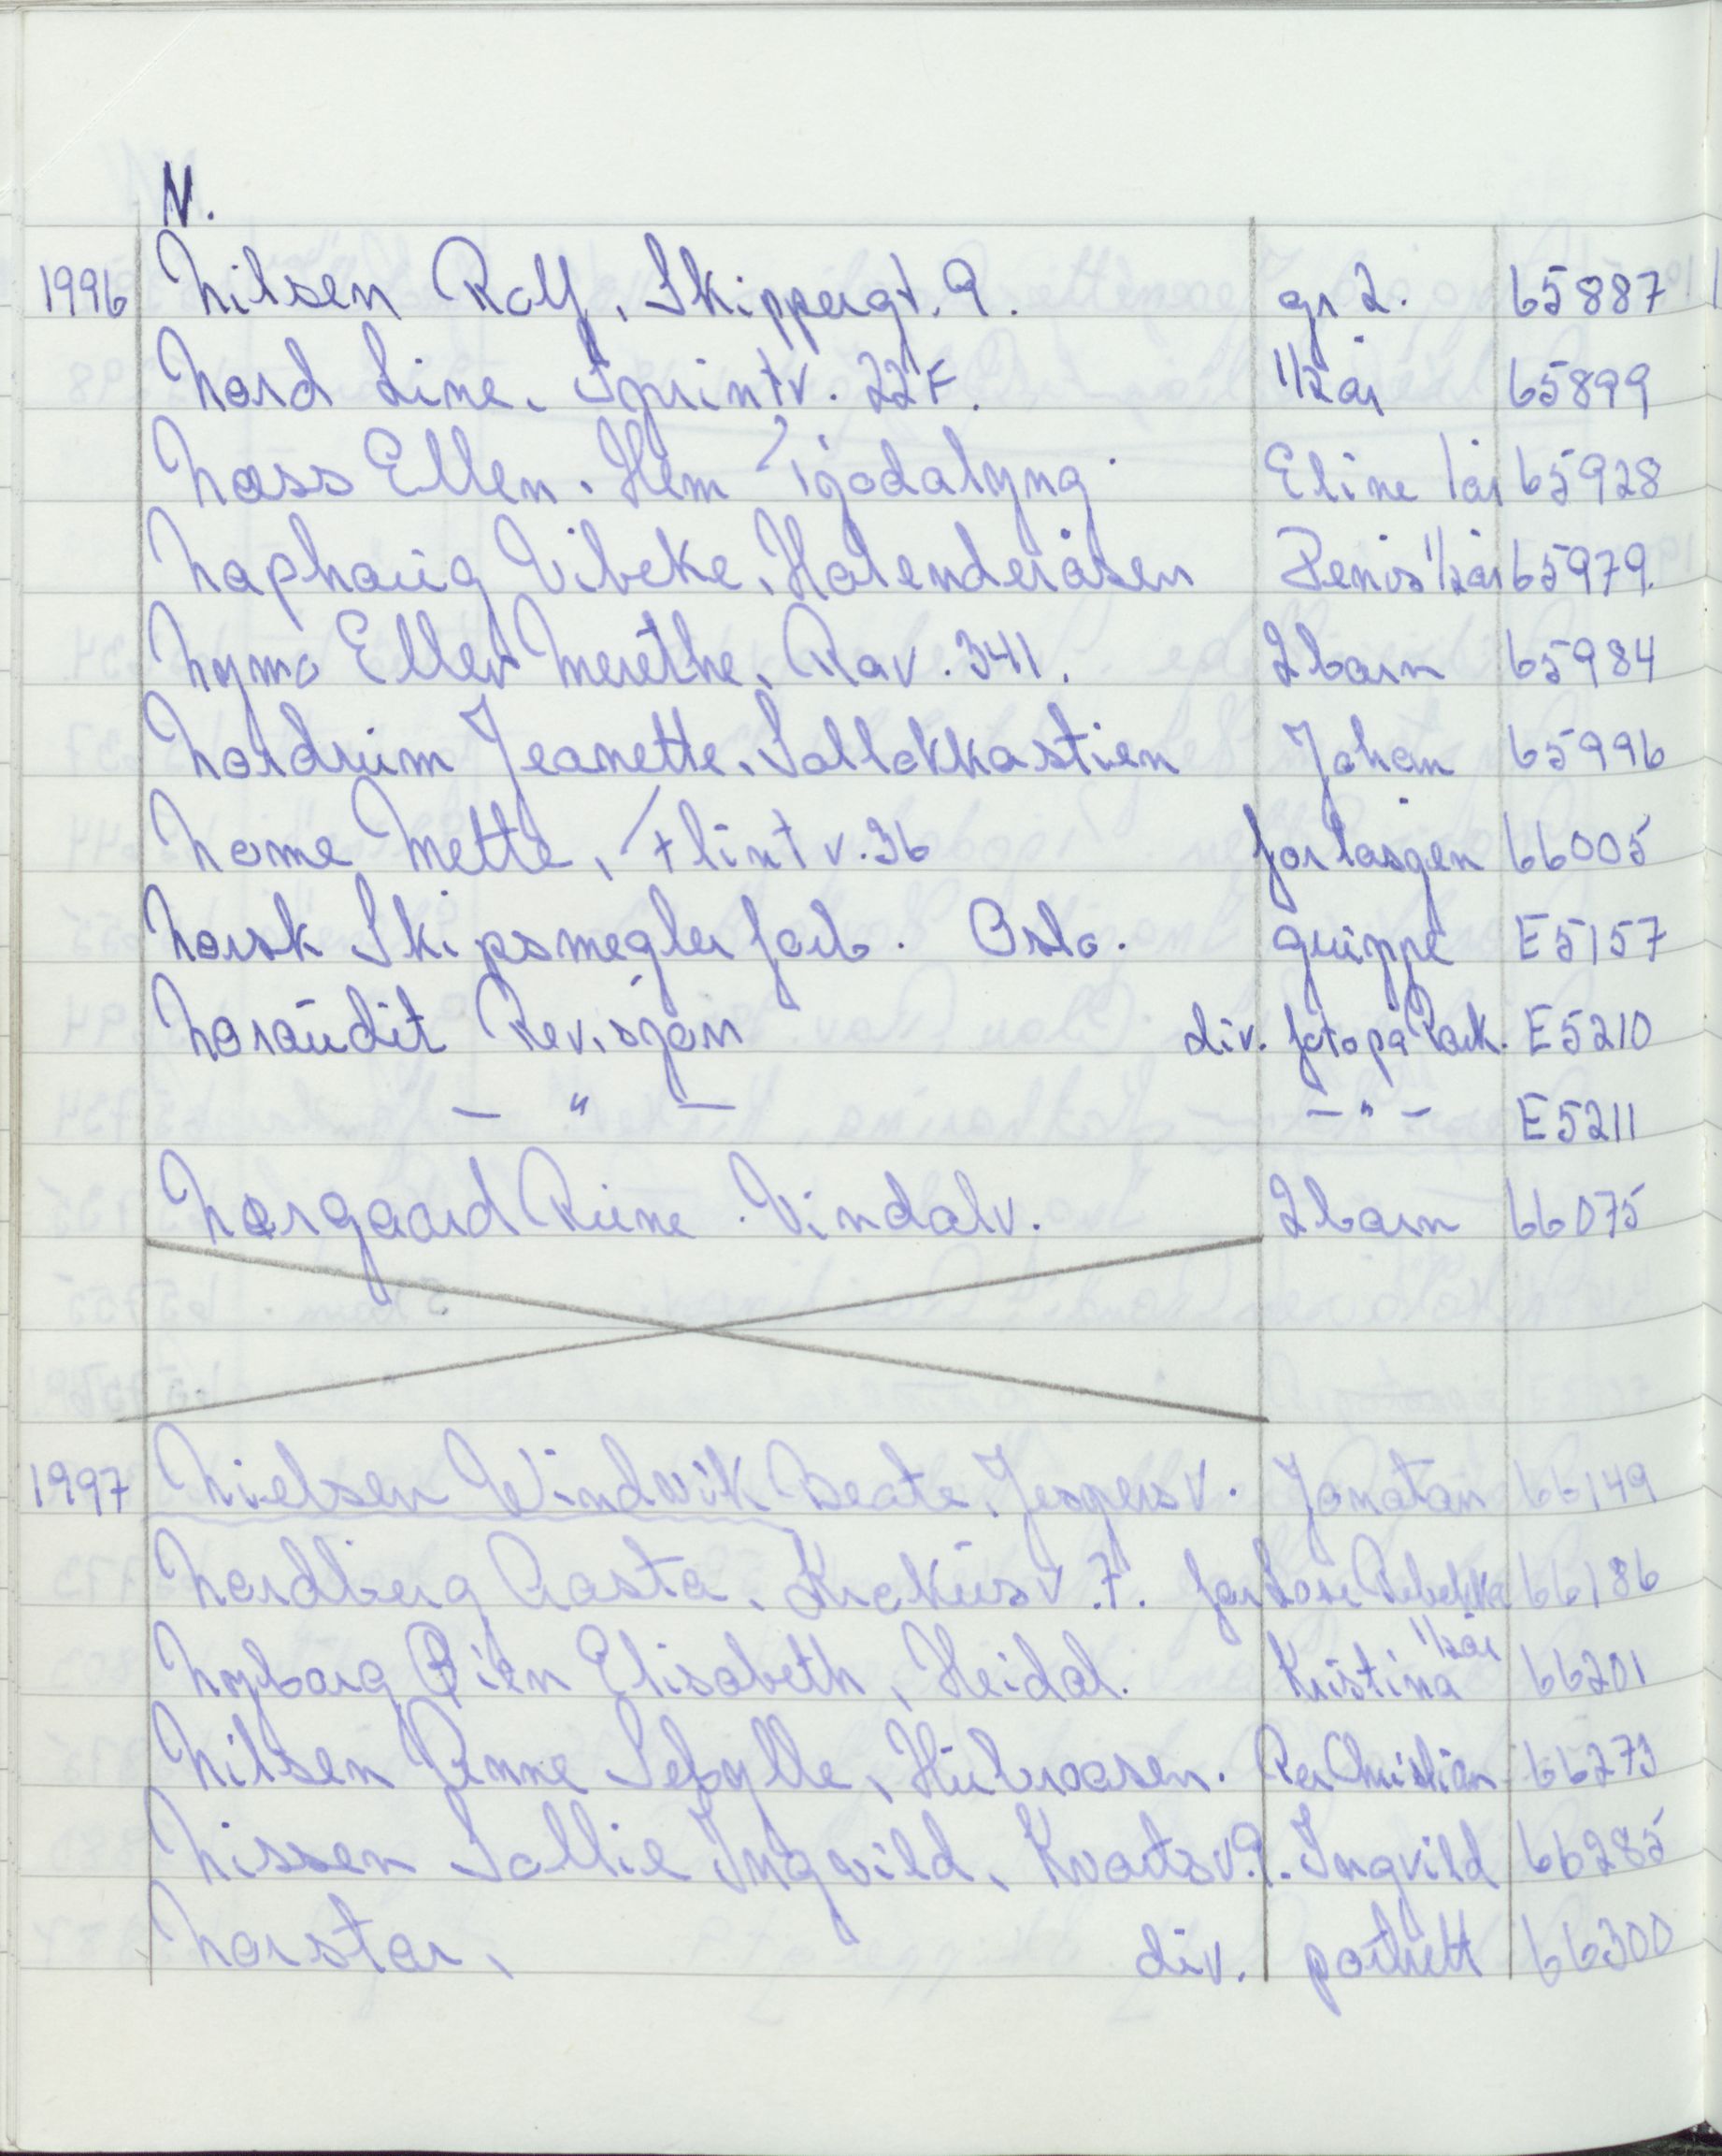 N.
1996 Nilsen Rolf, Skippergt. 9. gr 2. 65887
Nord Line, Sprintv. 22F. 1/2 år 65899
Næss Ellen. Hem Tjodalyng Eline 1år 65928
Naphaug Vibeke, Holenderåsen 1/2år 65979.
Nymo Ellen Merethe, Rav. 341. 2 barn 65984
Nordrum Jeanette, Sollokkastien Johan 65996
Nome Mette, Flintv. 36 forlosgen 66005
Norsk Skipsmegler forb. Oslo. gruppe E5157
Noraudit Revisjon div. foto på Park. E5210
— " — — " — E5211
Nørgaard Rune. Vindalv. 2 barn 66075
1997 Nielsen Windvik Beate, Jespersv. Jonatan 66149
Nordberg Aasta, Krokusv. 7. for Lose Rebekka 66186
Nyborg Elisabeth, Heidal. Kristina 1/2år 66201
Nilsen Anne Sebylle, Hubroåsen. Per Christian 66273
Nissen Sollie Ingvild, Kvartsv. 9. Ingvild 66285
Norstar, div. portrett 66300